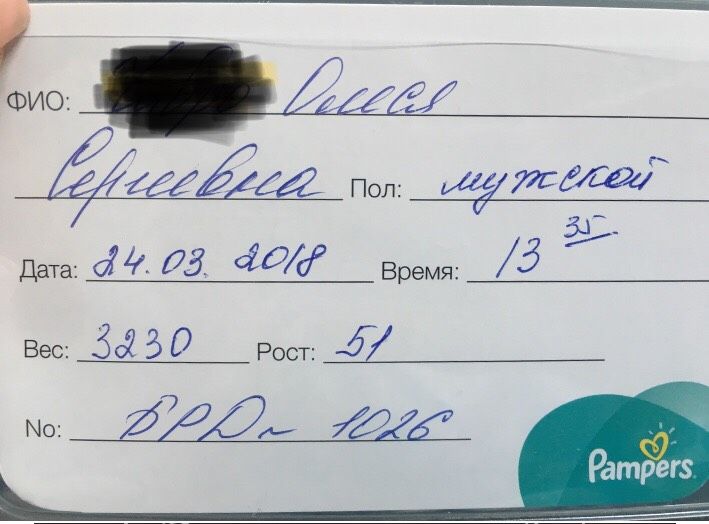 ФИО: Олеся
Сергеевна Пол: мужской
Дата: 24.03.2018 Время: 13 35
Вес: 3230 Рост: 51
No: БРД~ 1026
Pampers